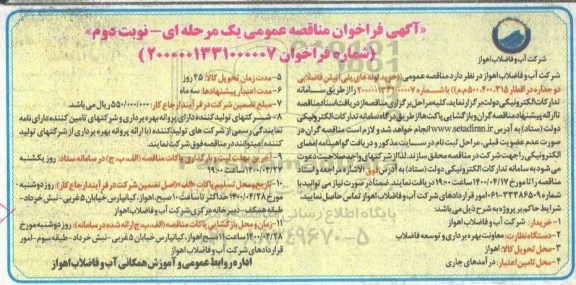 «آگهی فراخوان مناقصه عمومی یک مرحله ای – نوبت دوم»
(شماره فراخوان ۲۰۰۰۰۰۱۳۳۱۰۰۰۰۰۷)
شرکت آب و فاضلاب اهواز
شرکت آب و فاضلاب اهواز در نظر دارد مناقصه عمومی (خرید لوله های پلی اتیلن فاضلابی
دو جداره در اقطار ۳۱۵، ۴۰۰، ۵۰۰ م.م) به شماره ۲۰۰۰۰۰۱۳۳۱۰۰۰۰۰۷ را از طریق سامانه
تدارکات الکترونیکی دولت برگزار نماید. کلیه مراحل برگزاری مناقصه از دریافت اسناد مناقصه
تا ارائه پیشنهاد مناقصه گران و بازگشایی پاکت ها از طریق درگاه سامانه تدارکات الکترونیکی
دولت (ستاد) به آدرس www.setadiran.ir انجام خواهد شد و لازم است مناقصه گران در
صورت عدم عضویت قبلی، مراحل ثبت نام در سایت مذکور و دریافت گواهینامه امضای
الکترونیکی را جهت شرکت در مناقصه محقق سازند. لذا از شرکتهای واجد صلاحیت دعوت
می شود به سامانه تدارکات الکترونیکی دولت (ستاد) به آدرس فوق الاشاره مراجعه و اسناد
مناقصه را تا مورخ ۱۴۰۰/۰۴/۱۷ ساعت ۱۹:۰۰ دریافت نمایند. ضمناً در صورت نیاز می توانید با
شماره ۳۳۳۸۶۵۰۹-۰۶۱ امور قراردادهای شرکت آب و فاضلاب اهواز تماس حاصل نمایید.
شرایط حاکم بر پروژه به شرح ذیل می باشد:
۱- خریدار: شرکت آب و فاضلاب اهواز
۲- دستگاه نظارت: معاونت بهره برداری و توسعه فاضلاب
۳- محل تحویل کالا: اهواز
۴- محل تامین اعتبار: درآمدهای جاری
۵- مدت زمان تحویل کالا: ۴۵ روز
۶- مدت اعتبار پیشنهادها: سه ماه
۷- مبلغ تضمین شرکت در فرآیند ارجاع کار: ۵۵۰/۰۰۰/۰۰۰ ریال می باشد.
۸- شرکتهای تولید کننده دارای پروانه بهره برداری و شرکتهای تامین کننده دارای نامه
نمایندگی رسمی از شرکت های تولید کننده (با ارائه پروانه بهره برداری از شرکتهای تولید
کننده) میتوانند در مناقصه فوق شرکت نمایند.
۹- آخرین مهلت ثبت و بارگذاری پاکات مناقصه (الف، ب، ج) در سامانه ستاد: روز یکشنبه
۱۴۰۰/۰۴/۲۷ ساعت ۱۹:۰۰
۱۰- تاریخ و محل تسلیم پاکت «الف» (اصل تضمین شرکت در فرآیند ارجاع کار): روز دوشنبه
مورخ ۱۴۰۰/۰۴/۲۸ حداکثر تا ساعت ۱۰ صبح، اهواز، کیانپارس خیابان ۵ غربی – نبش خرداد–
طبقه همکف – دبیرخانه مرکزی شرکت آب و فاضلاب اهواز
۱۱- زمان و محل بازگشایی پاکات مناقصه (الف، ب، ج ارائه شده در سامانه): روز دوشنبه مورخ
۱۴۰۰/۰۴/۲۸ ساعت ۱۱ صبح اهواز، کیانپارس خیابان ۵ غربی – نبش خرداد- طبقه سوم- امور
قراردادهای شرکت آب و فاضلاب اهواز
اداره روابط عمومی و آموزش همگانی آب و فاضلاب اهواز